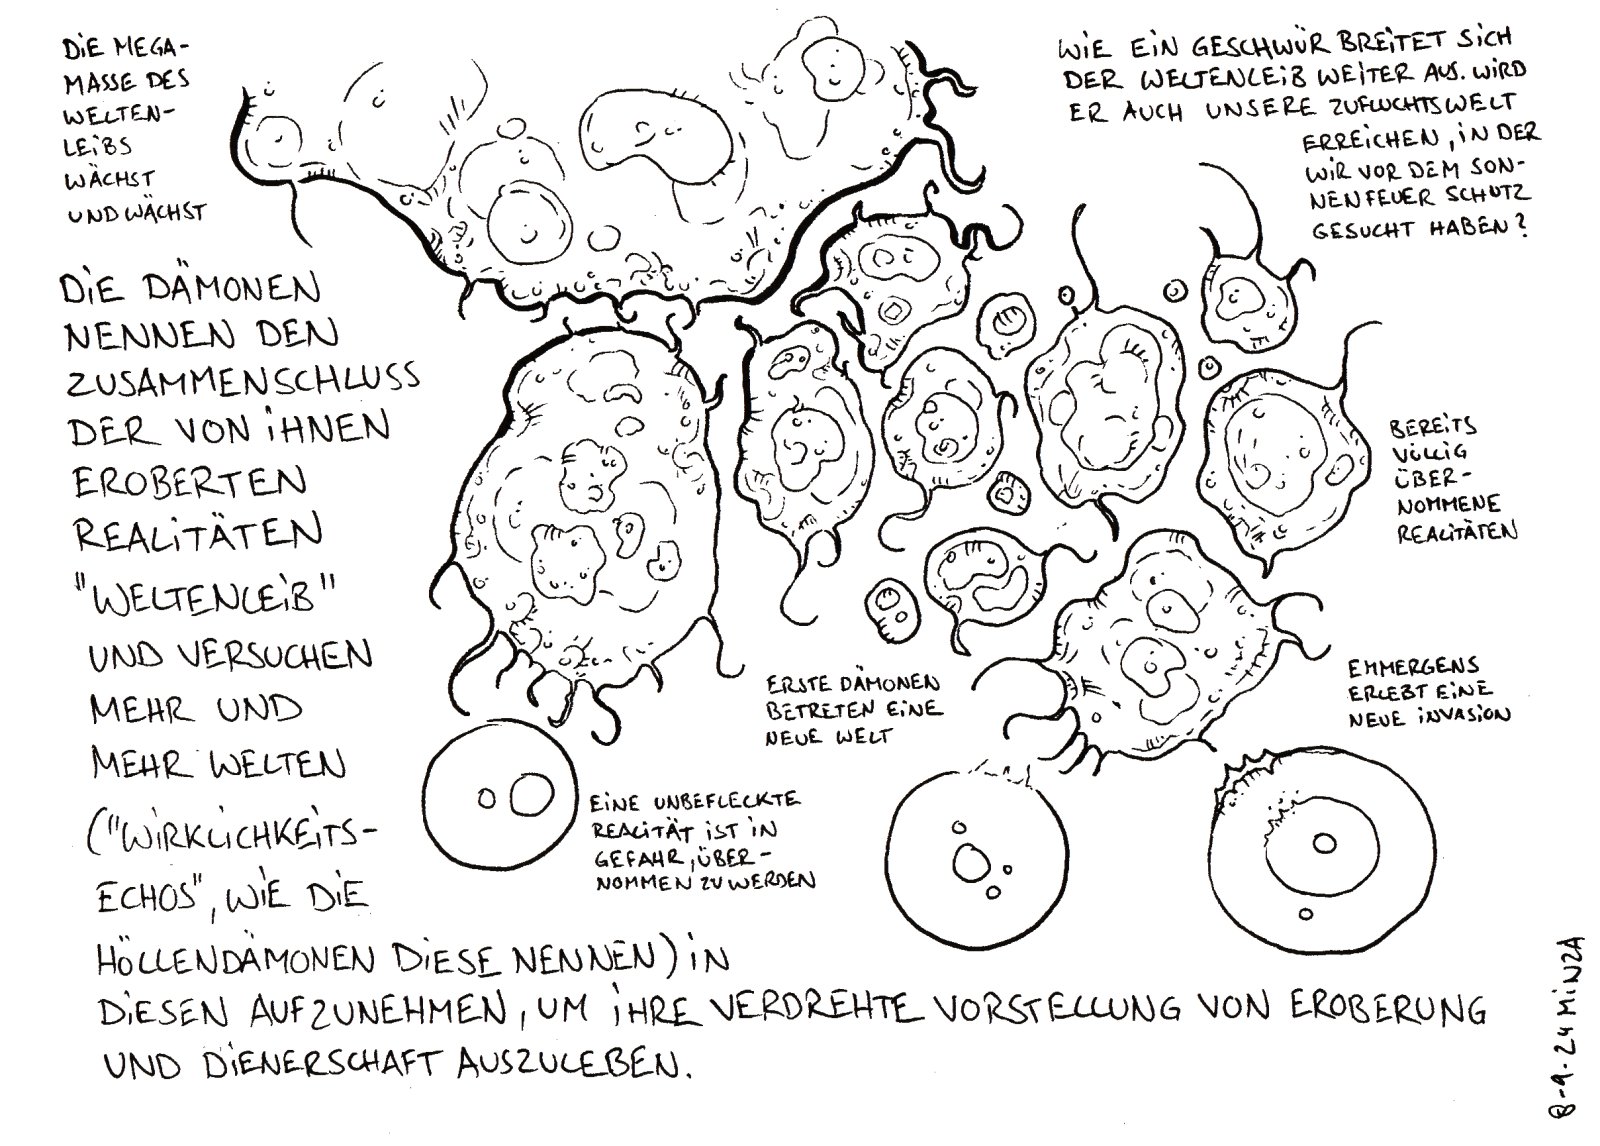 DIE MEGA-
MASSE DES
WELTEN-
LEIBS
WÄCHST
UND WÄCHST
WIE EIN GESCHWÜR BREITET SICH
DER WELTENLEIB WEITER AUS. WIRD
ER AUCH UNSERE ZUFLUCHTSWELT
ERREICHEN, IN DER
WIR VOR DEM SON-
NENFEUER SCHUTZ
GESUCHT HABEN?
DIE DÄMONEN
NENNEN DEN
ZUSAMMENSCHLUSS
DER VON IHNEN
EROBERTEN
REALITÄTEN
"WELTENLEIB"
UND VERSUCHEN
MEHR UND
MEHR WELTEN
("WIRKLICHKEITS-
ECHOS", WIE DIE
HÖLLENDÄMONEN DIESE NENNEN) IN
DIESEN AUFZUNEHMEN, UM IHRE VERDREHTE VORSTELLUNG VON EROBERUNG
UND DIENERSCHAFT AUSZULEBEN.
BEREITS
VÖLLIG
ÜBER-
NOMMENE
REALITÄTEN
ERSTE DÄMONEN
BETRETEN EINE
NEUE WELT
EMMERGENS
ERLEBT EINE
NEUE INVASION
EINE UNBEFLECKTE
REALITÄT IST IN
GEFAHR, ÜBER-
NOMMEN ZU WERDEN
8-9-24 MINZA